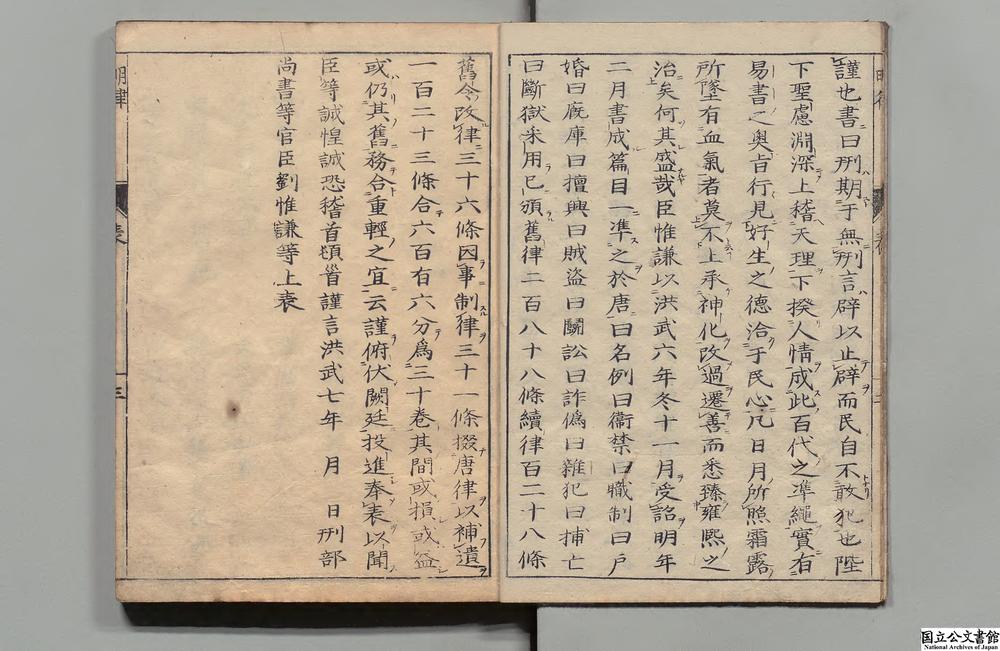 謹也書曰刑期于無刑言辟以止辟而民自不敢犯也陛
下聖慮淵深上稽天理下揆人情成此百代之準繩實有
易書之奥旨行見好生之德洽于民心凡日月所照霜露
所墜有血氣者莫不上承神化改過遷善而悉臻雍熙之
治矣何其盛哉臣惟謙以洪武六年冬十一月受詔明年
二月書成篇目一準之於唐曰名例曰衞禁曰職制曰戸
婚曰厩庫曰擅興曰賊盜曰鬭訟曰詐僞曰雜犯曰捕亡
曰斷獄采用已頒舊律二百八十八條續律百二十八條
舊令改律三十六條因事制律三十一條掇唐律以補遺
一百二十三條合六百有六分爲三十卷其間或損或益
或仍其舊務合重輕之宜云謹俯伏闕廷投進奉表以聞
臣等誠惶誠恐稽首頓首謹言洪武七年 月 日刑部
尚書等官臣劉惟謙等上表
明律 表 三
国立公文書館
National Archives of Japan